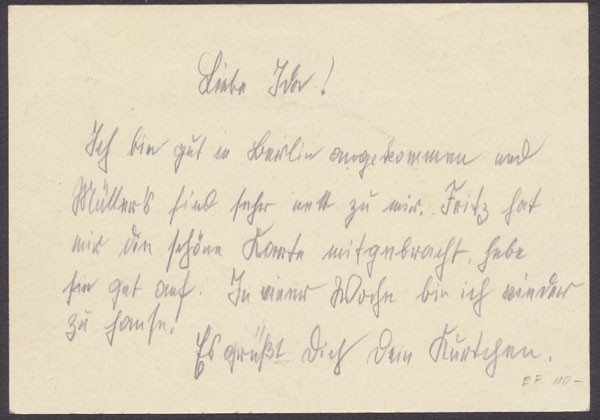 Liebe Ida!
Ich bin gut in Berlin angekommen und
Müller's sind sehr nett zu mir. Fritz hat
mir die schöne Karte mitgebracht, hebe
sie gut auf. In einer Woche bin ich wieder
zu Hause!
Es grüßt Dich Dein Kurtchen.
EF 110-